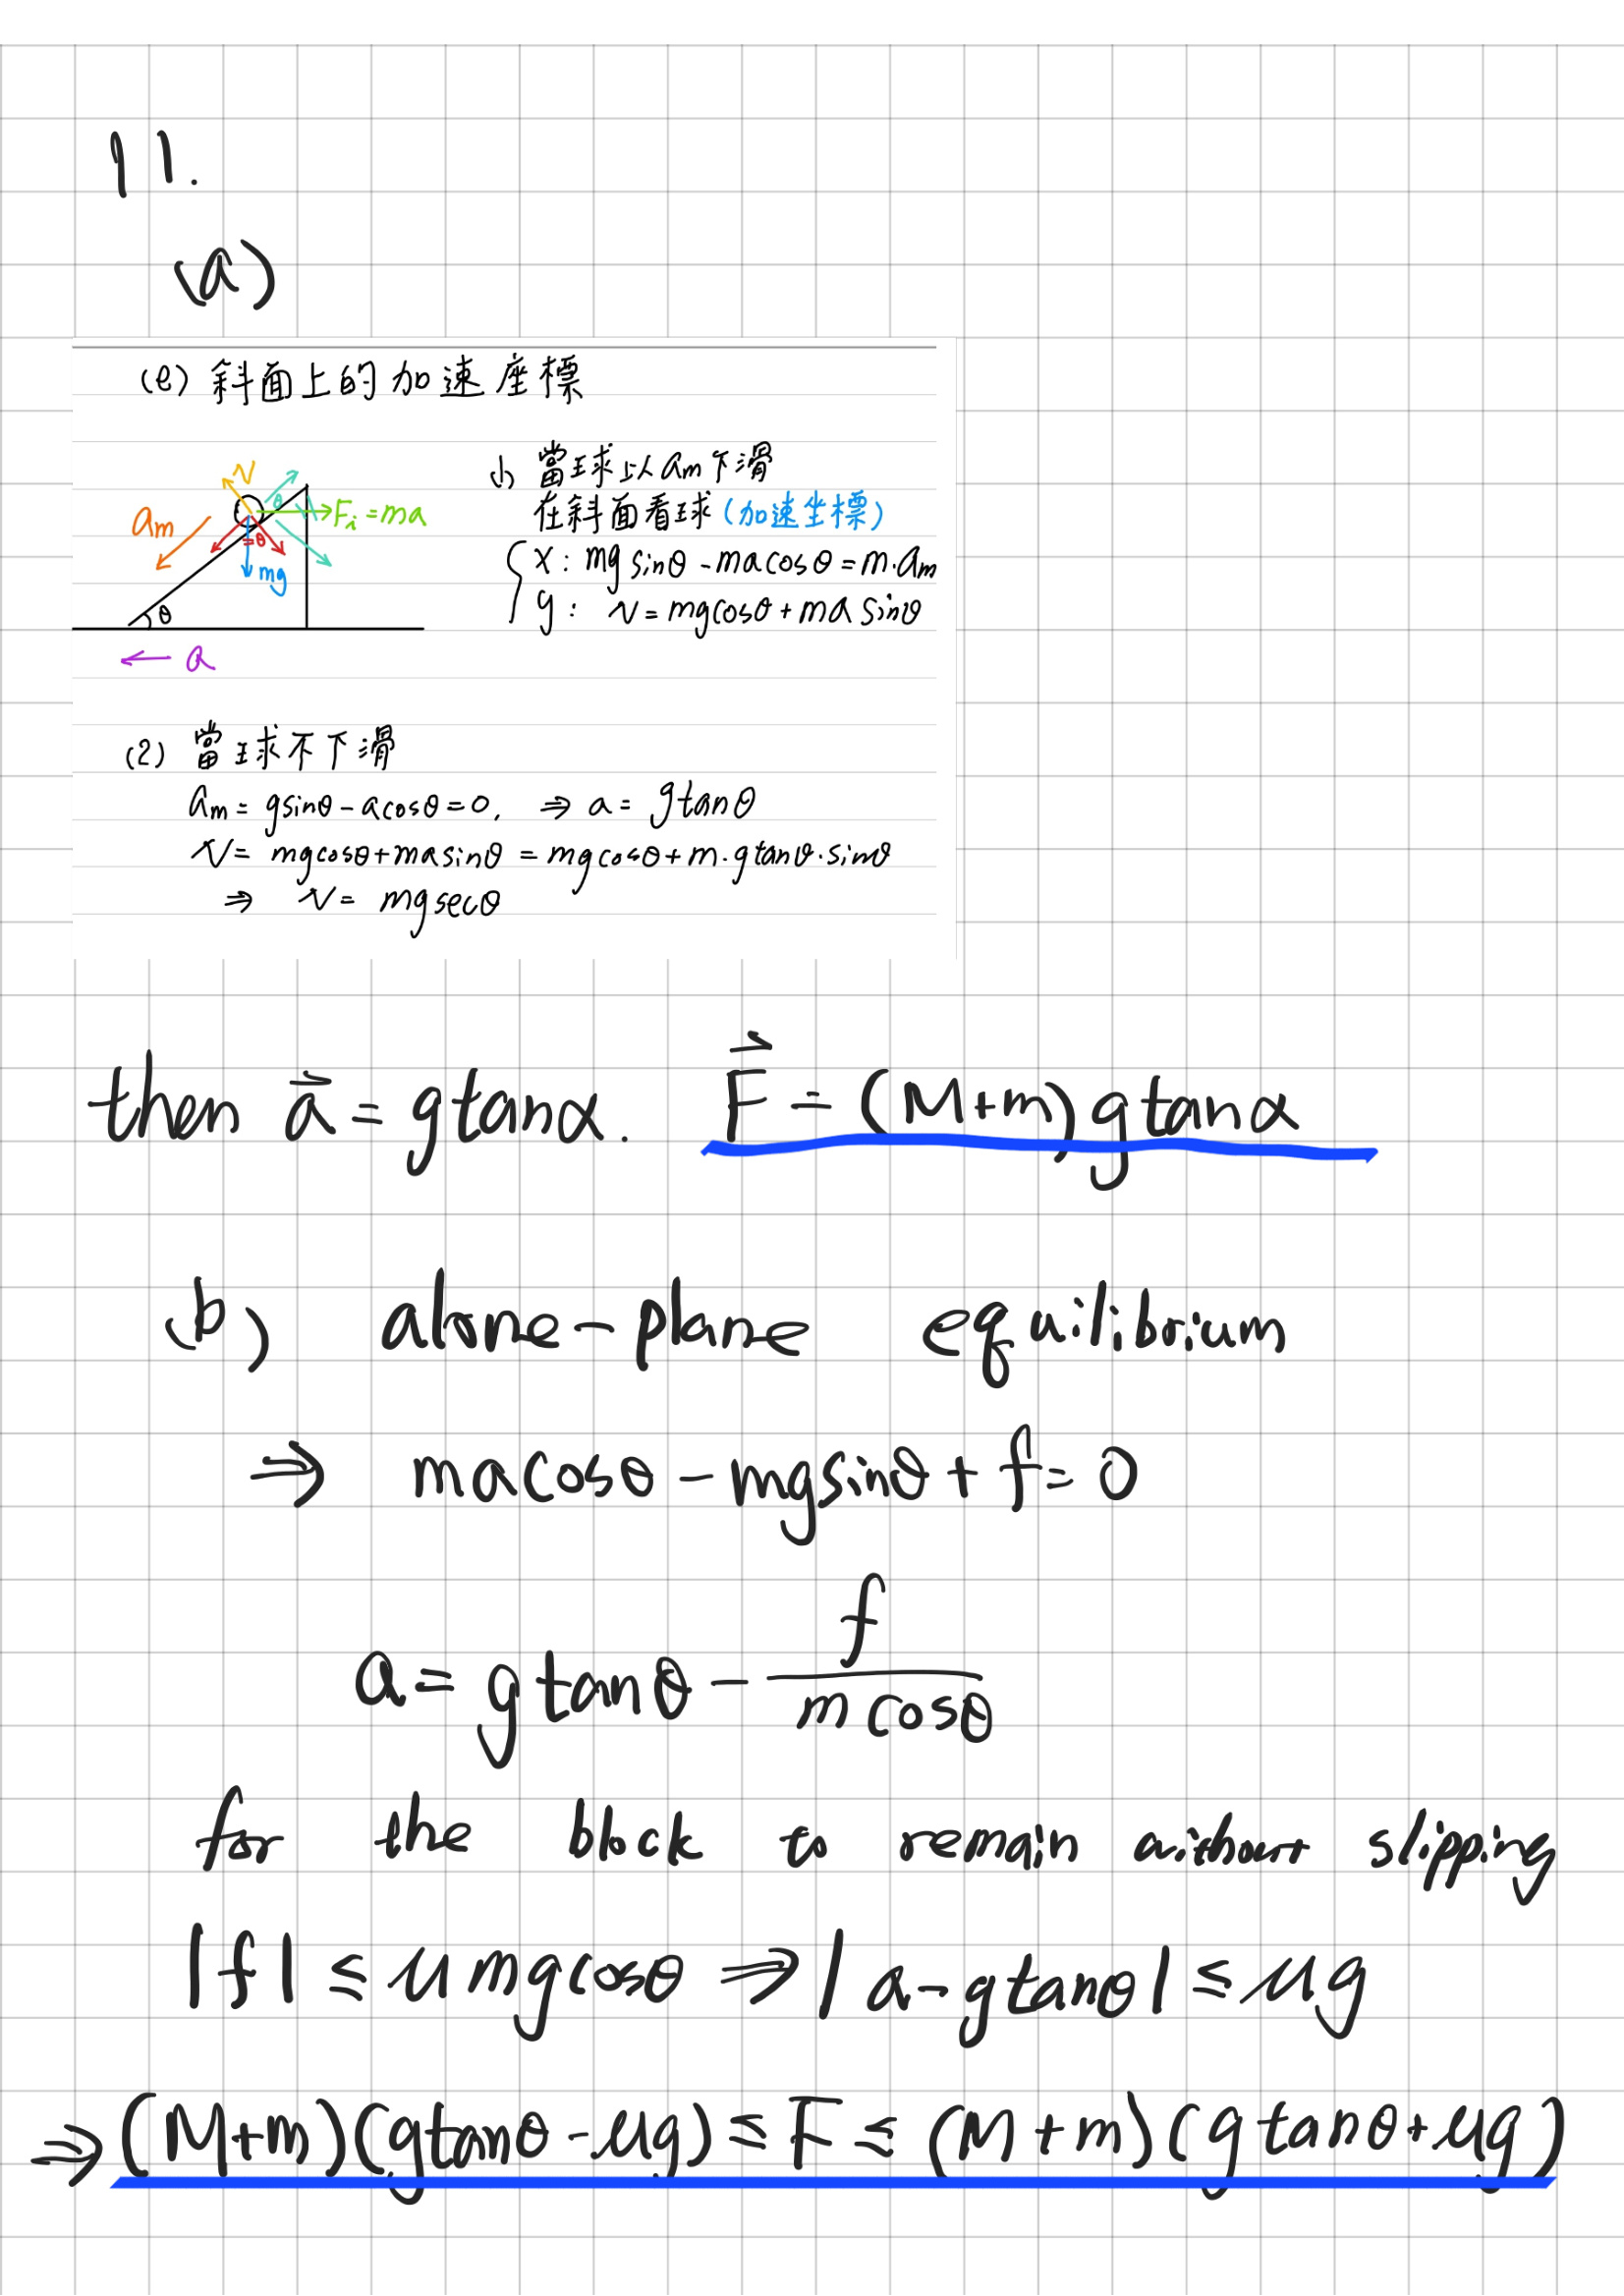 11.
(a)
(e) 斜面上的加速座標
N
θ
am
Fi = ma
=θ
mg
θ
← a
(1) 當球以am下滑
在斜面看球(加速坐標)
x : mg sinθ - macosθ = m·am
y : N = mgcosθ + ma sinθ
(2) 當球不下滑
am = gsinθ - acosθ = 0, ⇒ a = gtanθ
N = mgcosθ + masinθ = mgcosθ + m·gtanθ·sinθ
⇒ N = mgsecθ
then a⃗ = gtanα. F⃗ = (M+m)gtanα
(b) alone-plane equilibrium
⇒ macosθ - mgsinθ + f = 0
a = gtanθ - f/(m cosθ)
for the block to remain without slipping
|f| ≤ μmgcosθ ⇒ |a - gtanθ| ≤ μg
⇒ (M+m)(gtanθ - μg) ≤ F ≤ (M+m)(gtanθ + μg)